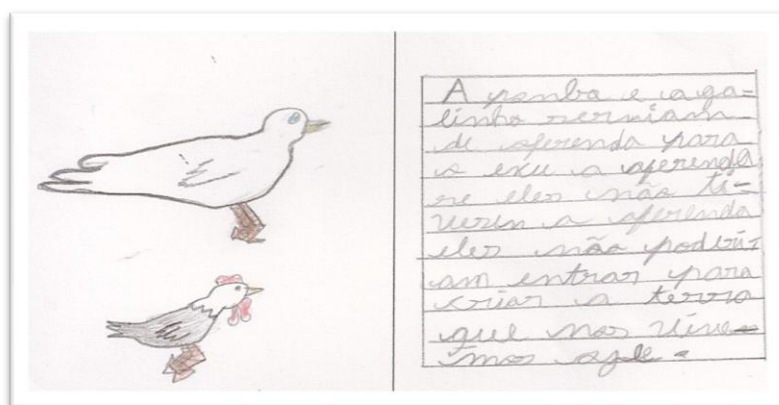 A ponba e a ga-
linha serviam
de oferenda para
o exu a oferenda
se eles não ti-
verin a oferenda
eles não poderi-
am entrar para
criar a terra
que nos vive-
mos